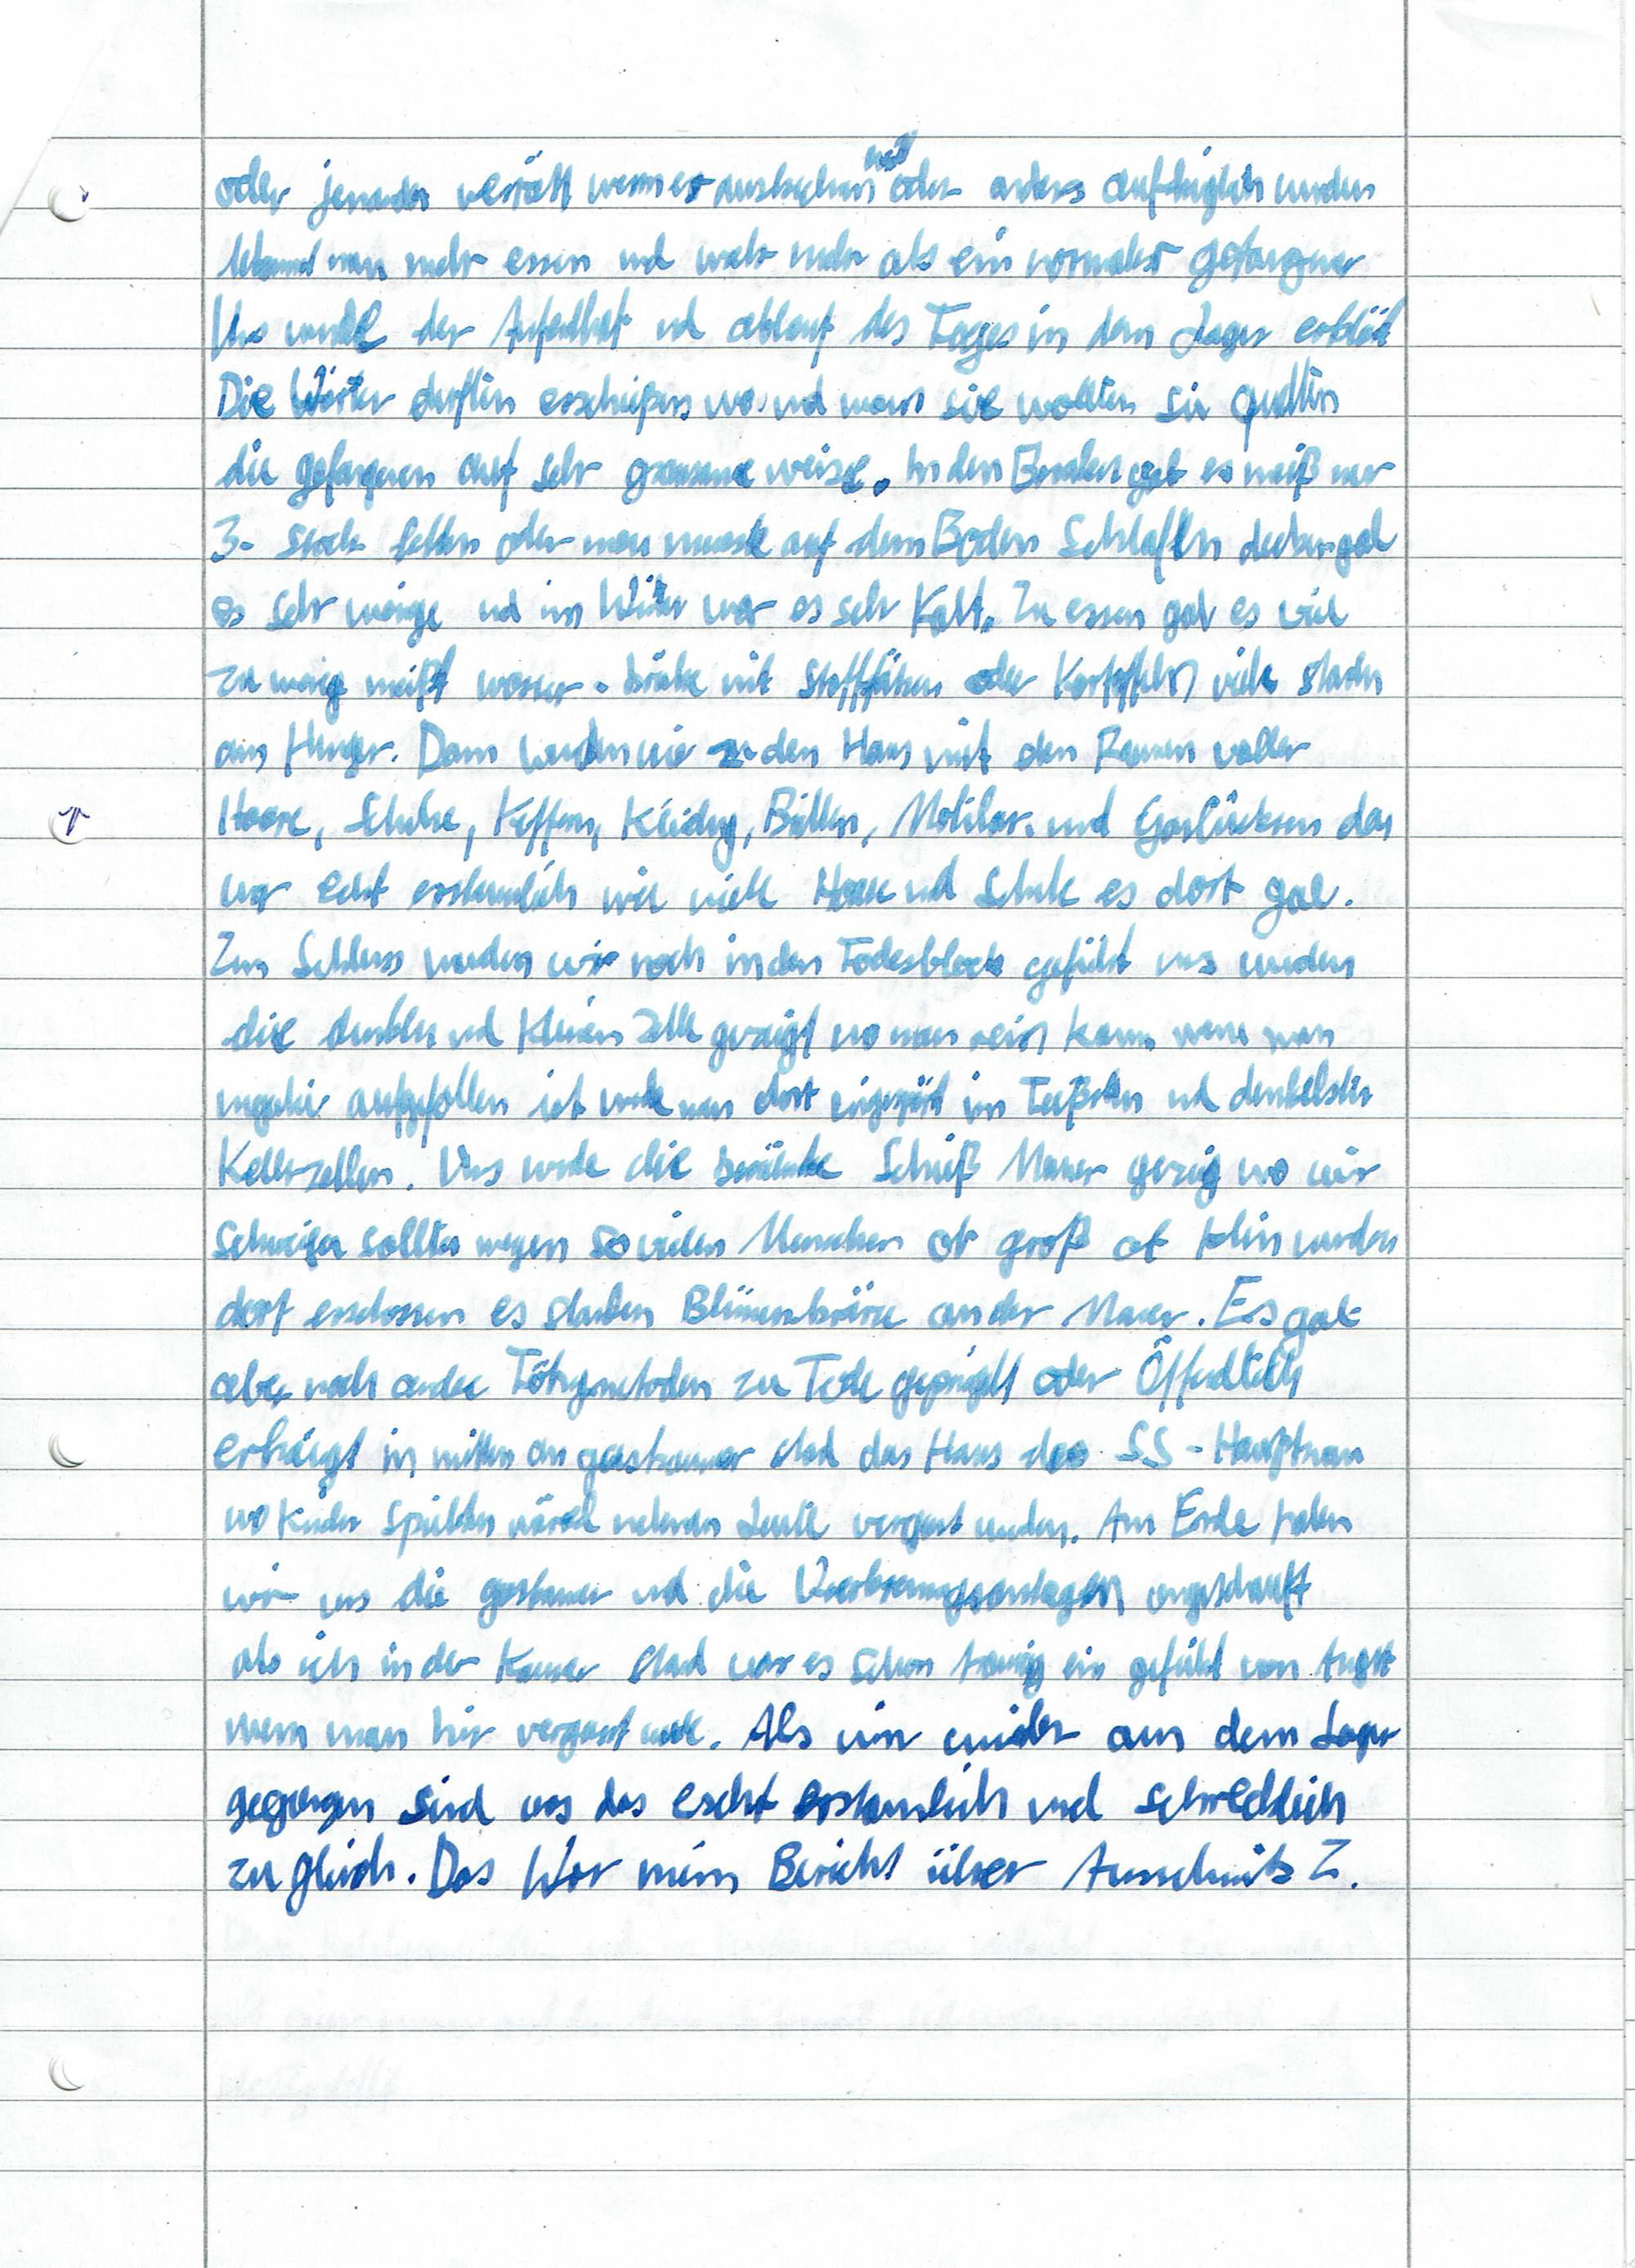 oder jemanden verrätt wenn er ausbrechen will oder anders aufmüpfich wurden
bekammt man mehr essen und mehr als ein normaler gefangner
Uns wurde der Aufendhalt und ablauf des Tages in dem Lager erklärt
Die Wärter durften erschießen wo und wann sie wollten sie quällten
die gefangenen auf sehr grausame weise. In den Baraken gab es meiß nur
3- Stock betten oder man musste auf dem Boden Schlafen decken gab
es sehr wenige und im Winter war es sehr Kalt. Zu essen gab es viel
zu wenig meißt wasser - brühe mit oder Kartoffeln viele starben
am Hunger. Dann wurden wir zu den Haus mit den Reumen voller
Haare, Schuhe, Koffern, Kleidung, Brillen, und das
war echt erstaunlich wie viele Haare und Schuhe es dort gab.
Zum Schluss wurden wir noch in den Todesblock geführt uns wurden
die dunklen und Kleinen Zelle gezeigt wo man rein kamm wenn man
negativ aufgefallen ist wurde man dort eingespärt im Tießsten und denkelsten
Kellerzellen. Uns wurde die Schieß Mauer gezeig wo wir
Schweigen sollten wegen so vielen Menschen ob groß ob klein wurden
dort erschossen es standen Blümenkränze an der Mauer. Es gab
aber noch andere Tötungmetoden zu Tode geprügelt oder Öffendlich
erhängt in mitten an gaskammer stand das Haus des SS - Hauptman
wo Kinder Spielten wärend nebenan Leute vergast wurden. Am Ende haben
wir uns die gaskammer und die Verbrennungsanlagen angeschauft
als ich in der Kammer stand war es schon traurig ein gefühl von Angst
wenn man hir vergast wurde. Als wir wieder aus dem Lager
gegangen sind was das escht erstaunlich und schrecklich
zu gleich. Das War mein Bericht über Ausschwits Z.